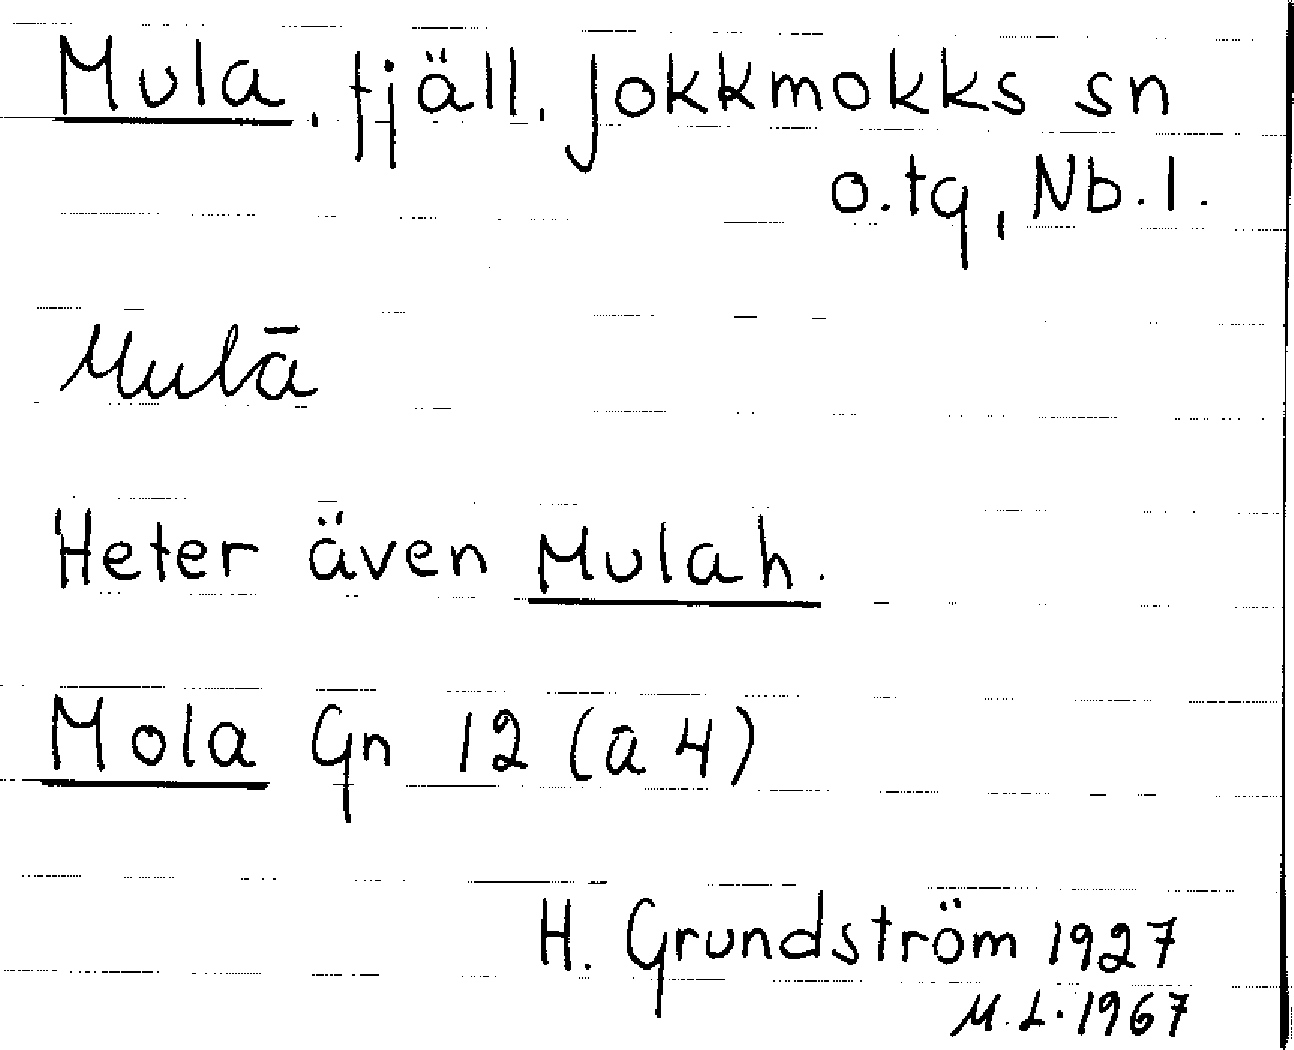 Mula, fjäll, Jokkmokks sn
o. tg, Nb. l.
Mulā
Heter även Mulah.
Mola Gn 12 (a 4)
H. Grundström 1927
M. L. 1967